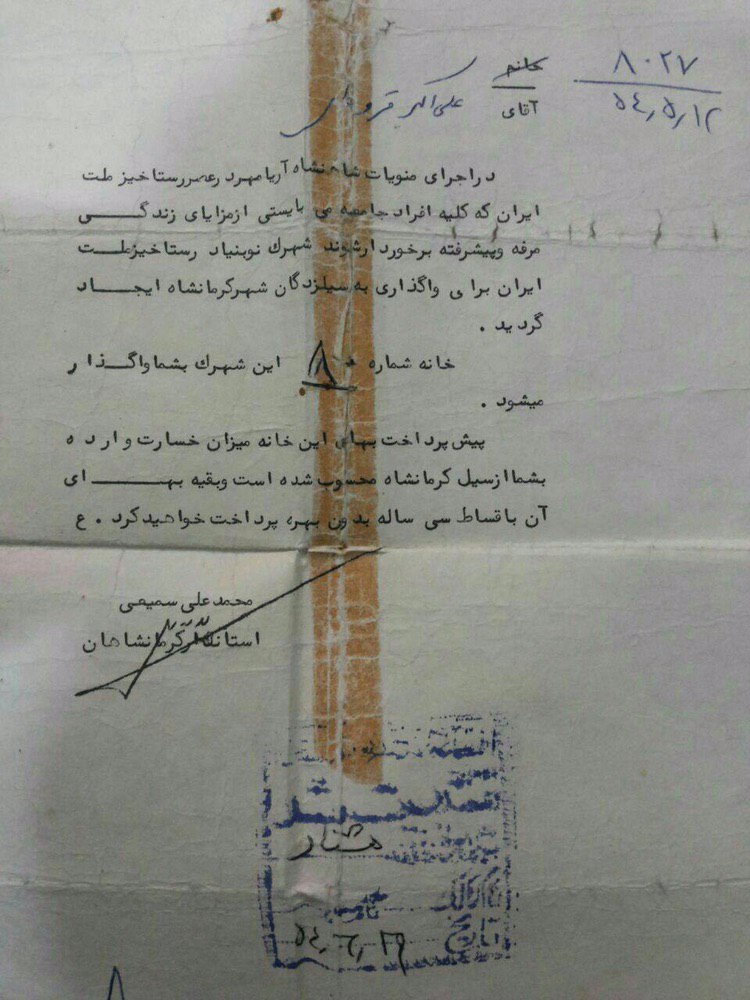 ۸۰۲۷
۵۴٫۵٫۱۲
خانم
آقای علی اکبر
دراجرای منویات شاهنشاه آریامهر درعصررستاخیز ملت
ایران که کلیه افراد جامعه می بایستی ازمزایای زندگی
مرفه وپیشرفته برخوردارشوند شهرك نوبنیاد رستاخیزملت
ایران برای واگذاری به سیلزدگان شهرکرمانشاه ایجاد
گردید .
خانه شماره ۸ این شهرك بشماواگذار
میشود .
پیش پرداخت بهای این خانه میزان خسارت وارده
بشماازسیل کرمانشاه محسوب شده است وبقیه بهای
آن باقساط سی ساله بدون بهره پرداخت خواهیدکرد . ع
محمدعلی سمیعی
استاندارکرمانشاهان
ثبت شد
تاریخ